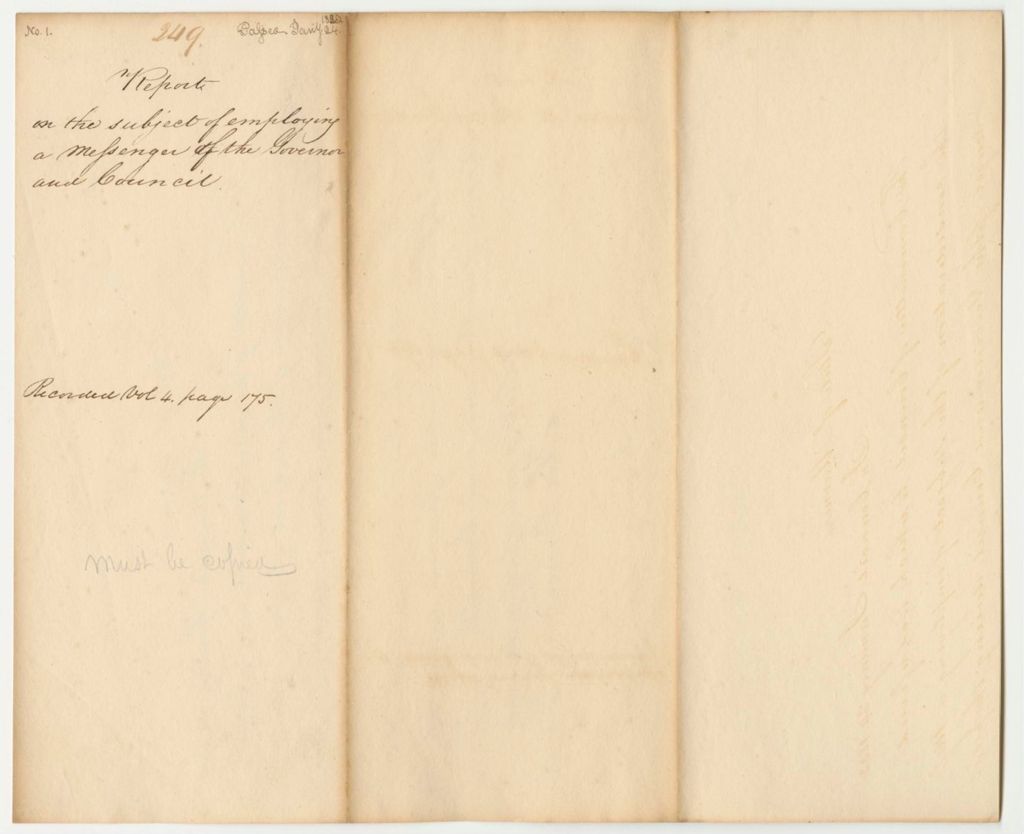 No. 1.
249.
Passed Jany 24.
Report
on the subject of employing
a Messenger of the Governor
and Council.
Recorded Vol 4. page 175.
Must be copied